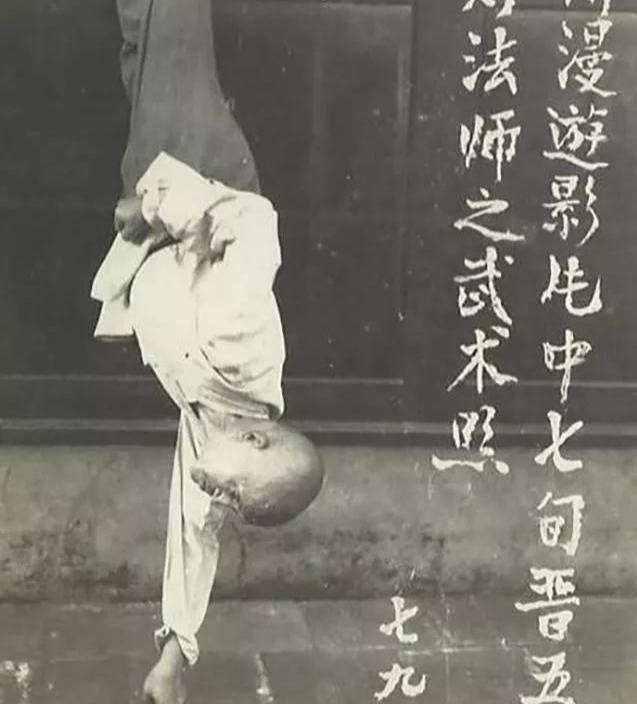 漫遊影片中七旬晋五
法师之武术照
七九